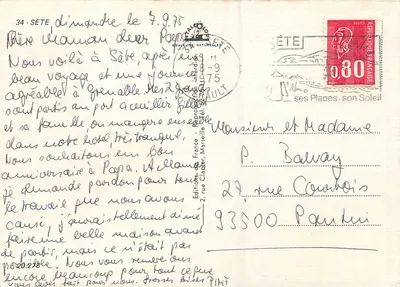 34 - SETE
dimanche le 7.9.75
Chère Maman cher Papa,
Nous voilà à Sète, après un
beau voyage et une journée
agréable à Grenoble. Mes 2
sont partis au port accueillir
et sa famille, on mangera ensemble
dans notre hôtel, très tranquil.
Nous souhaitons un bon
anniversaire à Papa. A Maman
je demande pardon pour tout
le travail que nous avons
causé, j'aurais tellement aimé
faire une belle maison avant
de partir, mais ce n'était pas
possible. Nous vous remercions
encore beaucoup pour tout ce que
vous avez fait pour nous. Grosses bises
SETE
-9
1975
HERAULT
SETE
ses Plages, son Soleil
REPUBLIQUE FRANÇAISE
0,80
Monsieur et Madame
P. Balvay
27, rue Courtois
93500 Pantin